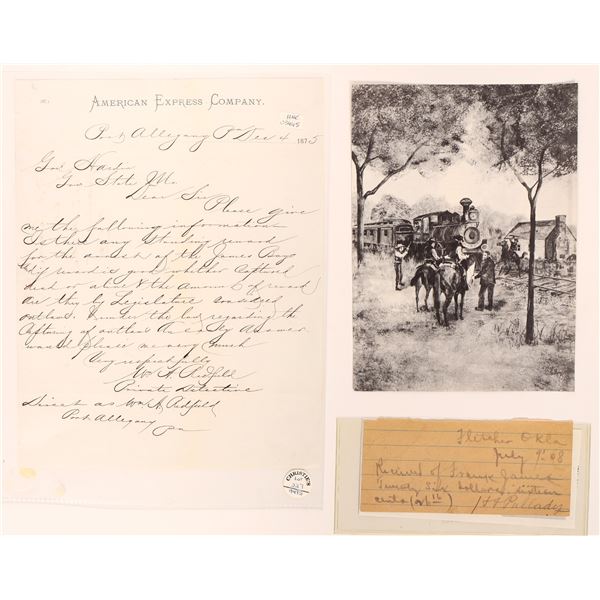 AMERICAN EXPRESS COMPANY.
Port Allegany Pa Dec 4 1875
Gov Hardin
Gov State of Mo
Dear Sir
Please give
me the following information
Is there any standing reward
for the arrest of the James Boys
& if reward is good whether captured
dead or alive & the amount of reward
are they by Legislative considered
outlaws. Under the law regarding the
Capturing of outlaws An early answer
would please me very much
Very respectfully
Wm H Redfield
Private Detective
Direct as Wm H Redfield
Port Allegany
Pa
CHRISTIE'S
Lot
227
Fletcher Okla
July 9' 08
Received of Frank James
Twenty Six dollars sixteen
cents (26 16)